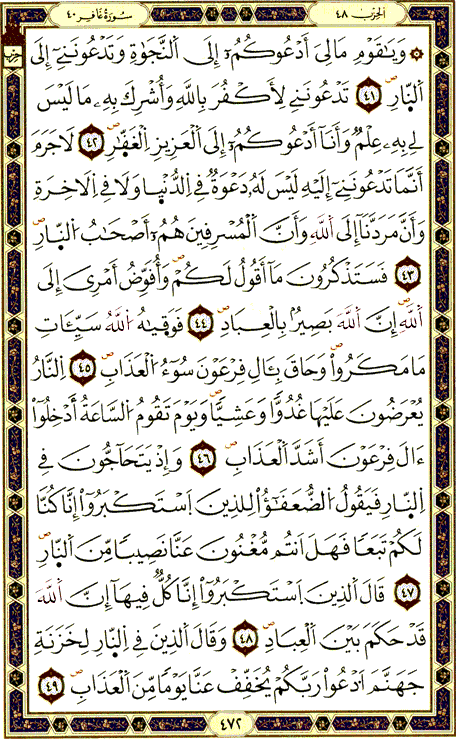 الحزب ٤٨ سورة غافر ٤٠
حزب
۞ وَيَٰقَوْمِ مَا لِيَ أَدْعُوكُمُۥ إِلَى اَ۬لنَّجَوٰةِ وَتَدْعُونَنِے إِلَى
اَ۬لنّ۪ارِ ٤١ تَدْعُونَنِے لِأَكْفُرَ بِاللَّهِ وَأُشْرِكَ بِهِۦ مَا لَيْسَ
لِے بِهِۦ عِلْمٌ وَأَنَآ أَدْعُوكُمُۥٓ إِلَى اَ۬لْعَزِيزِ اِ۬لْغَفّٰ۪رِ ٤٢ لَا جَرَمَ
أَنَّمَا تَدْعُونَنِےٓ إِلَيْهِ لَيْسَ لَهُۥ دَعْوَةٌ فِے اِ۬لدُّنْي۪ا وَلَا فِے اِ۬لَاخِرَةِ
وَأَنَّ مَرَدَّنَآ إَلَى اَ۬للَّهِ وَأَنَّ اَ۬لْمُسْرِفِينَ هُمُۥٓ أَصْحَٰبُ اُ۬لنّ۪ارِ
٤٣ فَسَتَذْكُرُونَ مَآ أَقُولُ لَكُمْ وَأُفَوِّضُ أَمْرِيَ إِلَى
اَ۬للَّهِ إِنَّ اَ۬للَّهَ بَصِيرٌۢ بِالْعِبَادِ ٤٤ فَوَقِيٰهُ اُ۬للَّهُ سَيِّـَٔاتِ
مَا مَكَرُواْ وَحَاقَ بِـَٔالِ فِرْعَوْنَ سُوٓءُ اُ۬لْعَذَابِ ٤٥ اِ۬لنَّارُ
يُعْرَضُونَ عَلَيْهَا غُدُوّاً وَعَشِيّاً وَيَوْمَ تَقُومُ اُ۬لسَّاعَةُ أَدْخِلُوٓاْ
ءَالَ فِرْعَوْنَ أَشَدَّ اَ۬لْعَذَابِ ٤٦ وَإِذْ يَتَحَآجُّونَ فِے
اِ۬لنّ۪ارِ فَيَقُولُ اُ۬لضُّعَفَٰٓؤُاْ لِلذِينَ اَ۪سْتَكْبَرُوٓاْ إِنَّا كُنَّا
لَكُمْ تَبَعاً فَهَلَ اَنتُم مُّغْنُونَ عَنَّا نَصِيباً مِّنَ اَ۬لنّ۪ارِ
٤٧ قَالَ اَ۬لذِينَ اَ۪سْتَكْبَرُوٓاْ إِنَّا كُلٌّ فِيهَآ إِنَّ اَ۬للَّهَ
قَدْ حَكَمَ بَيْنَ اَ۬لْعِبَادِ ٤٨ وَقَالَ اَ۬لذِينَ فِے اِ۬لنّ۪ارِ لِخَزَنَةِ
جَهَنَّمَ اَ۟دْعُواْ رَبَّكُمْ يُخَفِّفْ عَنَّا يَوْماً مِّنَ اَ۬لْعَذَابِ ٤٩
٤٧٢